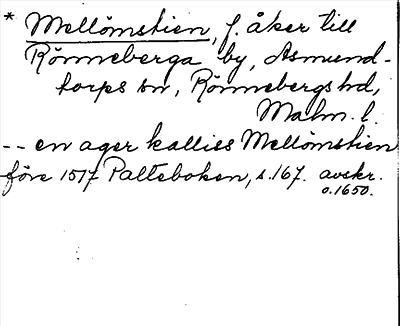 * Mellömstien, f. åker till
Rönneberga by, Asmund-
torps sn, Rönnebergs hd,
Malm. l.
-- en ager kalliss Mellömstien
före 1517 Palteboken, s. 167. avskr.
o. 1650.